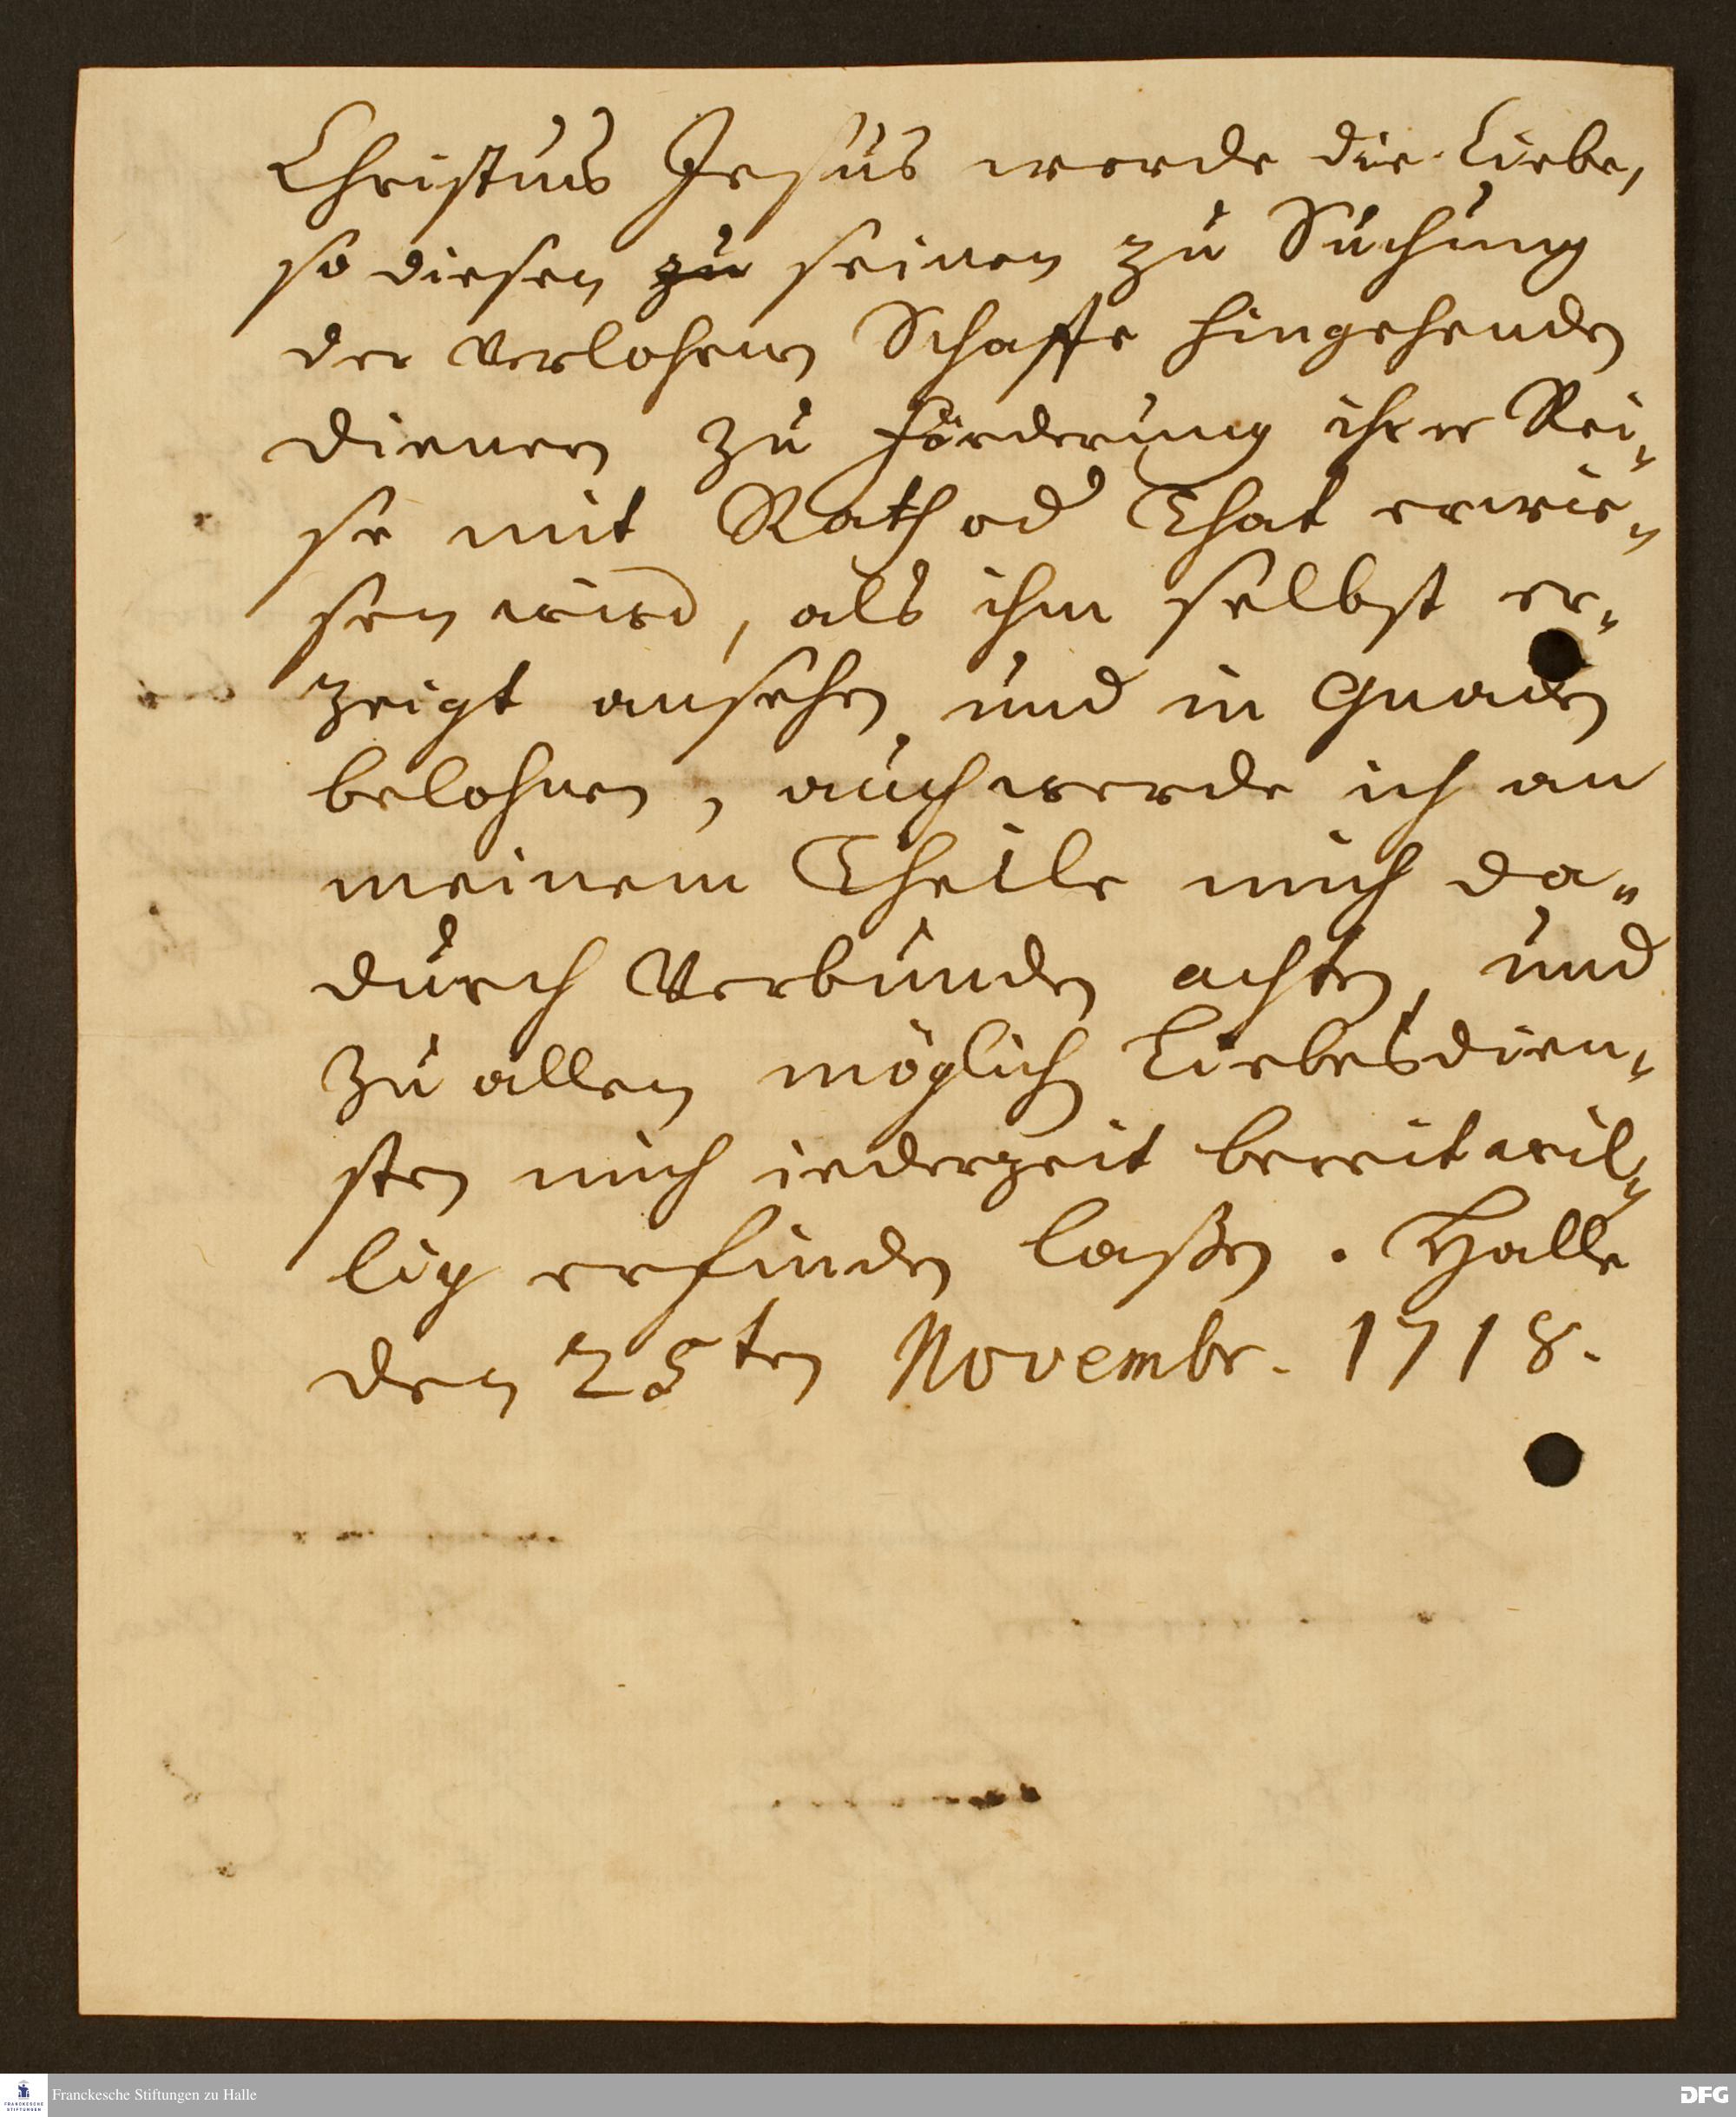 Christus Jesus werde die Liebe,
so diesen zu seinen zu Suchung
der verlohrnen Schaffe hingehenden
Dienern zu Förderung ihrer Rei-
se mit Rath od That erwie-
sen wird, als ihm selbst er-
zeigt ansehen und in Gnaden
belohnen, auch werde ich an
meinem Theile mich da-
durch verbunden achten, und
zu allen möglich Liebesdien-
sten mich iederzeit bereitwil-
lig erfinden laßen. Halle
den 25ten Novembr. 1718.
Franckesche Stiftungen zu Halle
DFG